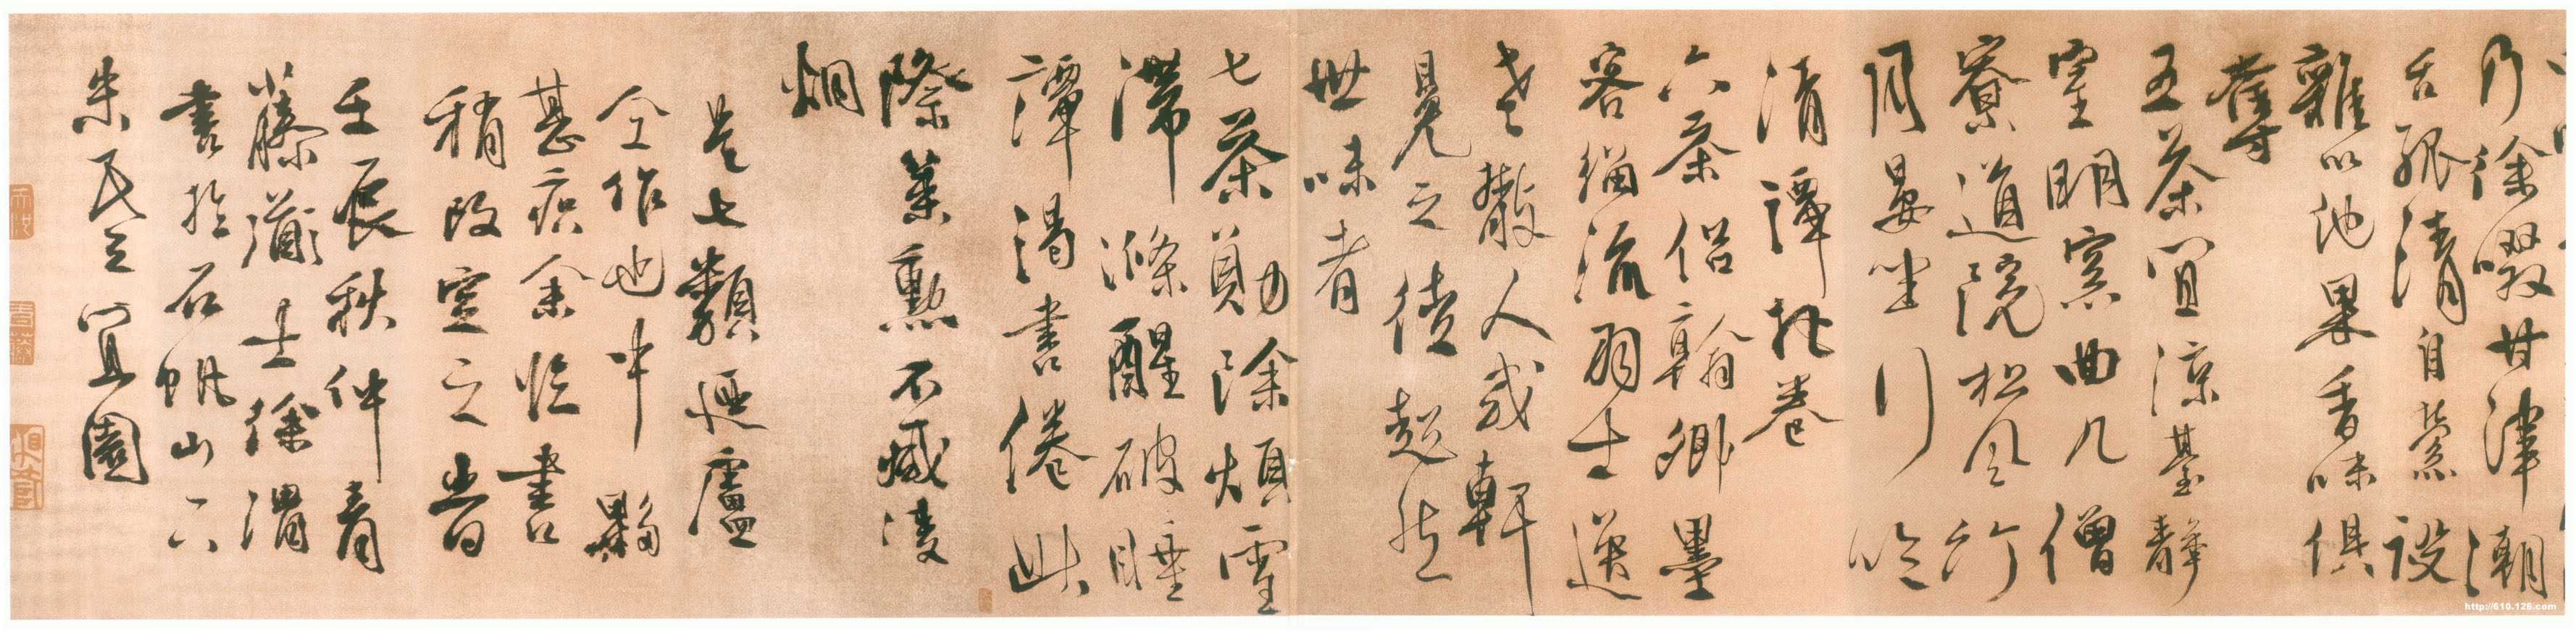 乃徐啜甘津潮
舌孤清自縈設
雜以他果香味俱
奪
五茶宜涼臺靜
室明窗曲几僧
寮道院松風竹
月晏坐行吟
清譚把卷
六茶侶翰卿墨
客緇流羽士逸
老散人或軒
冕之徒超然
世味者
七茶勳除煩雪
滯滌醒破睡
譚渴書倦此
際策勳不減凌
烟
是七類迺盧
仝作也中夥
甚疾余臨書
稍改定之時
壬辰秋仲青
藤道士徐渭
書於石帆山下
朱氏之宜園
http://610.126.com